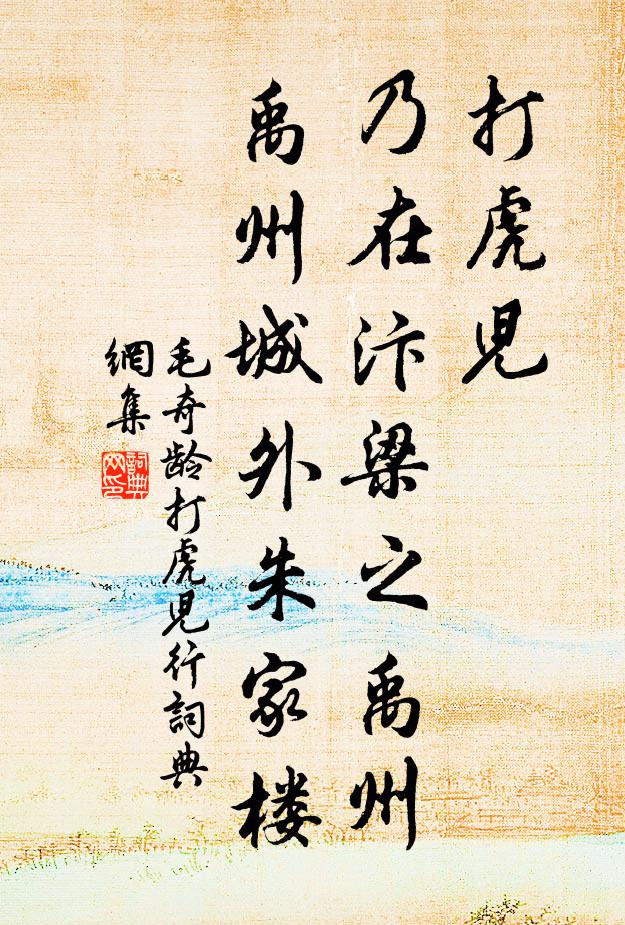 打虎児
乃在汴梁之禹州
禹州城外朱家楼
毛奇龄打虎児行詞典
網集
詞典
网印